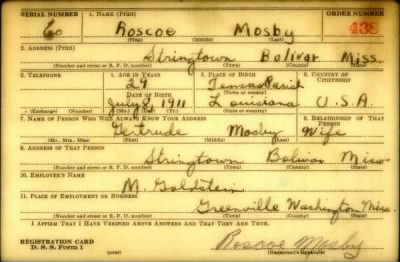 SERIAL NUMBER 1. NAME (Print) ORDER NUMBER
6 Roscoe Mosby 438
(First) (Middle) (Last)
2. ADDRESS (Print)
Stringtown Bolivar Miss.
(Number and street or R. F. D. number) (Town) (County) (State)
3. TELEPHONE 4. AGE IN YEARS 5. PLACE OF BIRTH 6. COUNTRY OF CITIZENSHIP
29 Tensas Parish
DATE OF BIRTH
July 8, 1911 Louisiana U.S.A.
(Exchange) (Number) (Mo.) (Day) (Yr.) (State or country)
7. NAME OF PERSON WHO WILL ALWAYS KNOW YOUR ADDRESS 8. RELATIONSHIP OF THAT PERSON
Gertrude Mosby Wife
(Mr., Mrs., Miss) (First) (Middle) (Last)
9. ADDRESS OF THAT PERSON
Stringtown Bolivar Miss
(Number and street or R. F. D. number) (Town) (County) (State)
10. EMPLOYER'S NAME
M. Goldstein
11. PLACE OF EMPLOYMENT OR BUSINESS
Greenville Washington Miss.
(Number and street or R. F. D. number) (Town) (County) (State)
I AFFIRM THAT I HAVE VERIFIED ABOVE ANSWERS AND THAT THEY ARE TRUE.
REGISTRATION CARD
D. S. S. Form 1 Roscoe Mosby
(Registrant's signature)